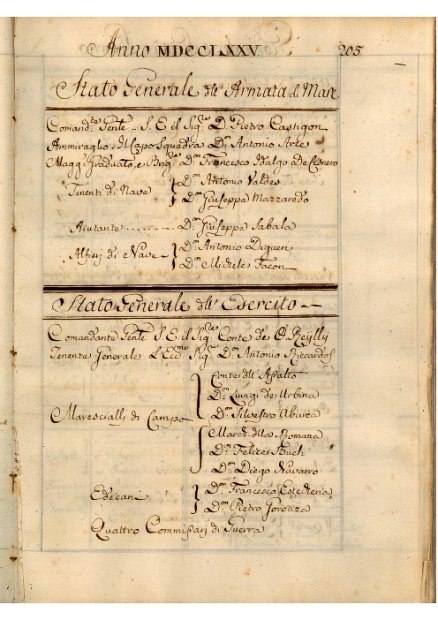 Anno MDCCLXXV. 205
Stato Generale dell' Armata di Mare
Comand.te Gen.te S. E. il Sig.r D. Pietro Castigon
Ammiraglio di Caposquadra D.n Antonio Arte
Magg. Graduato, e D.n Francesco Idalgo De
Tenenti di Nave D.n Antonio Valdes
D.n Giuseppe Mazzaredo
Aiutante D.n Giuseppe Sabala
Alfieri di Nave D.n Antonio Diguen
D.n Michele Tacon
Stato Generale dell' Esercito
Comandante Gente S. E. il Sig.r Conte de O Reÿlly
Tenente Generale L'Ecc.mo Sig.r D.n Antonio Riccardos
Conte dell' Assalto
D.n Luigi de Urbina
Marescialli di Campo D.n Silvestro Abarca
March. della Romana
D.n Felice Buch
D.n Diego Navarro
Edecani D.n Francesco Estedieria
D.n Pietro Gorouza
Quattro Commissarj di Guerra